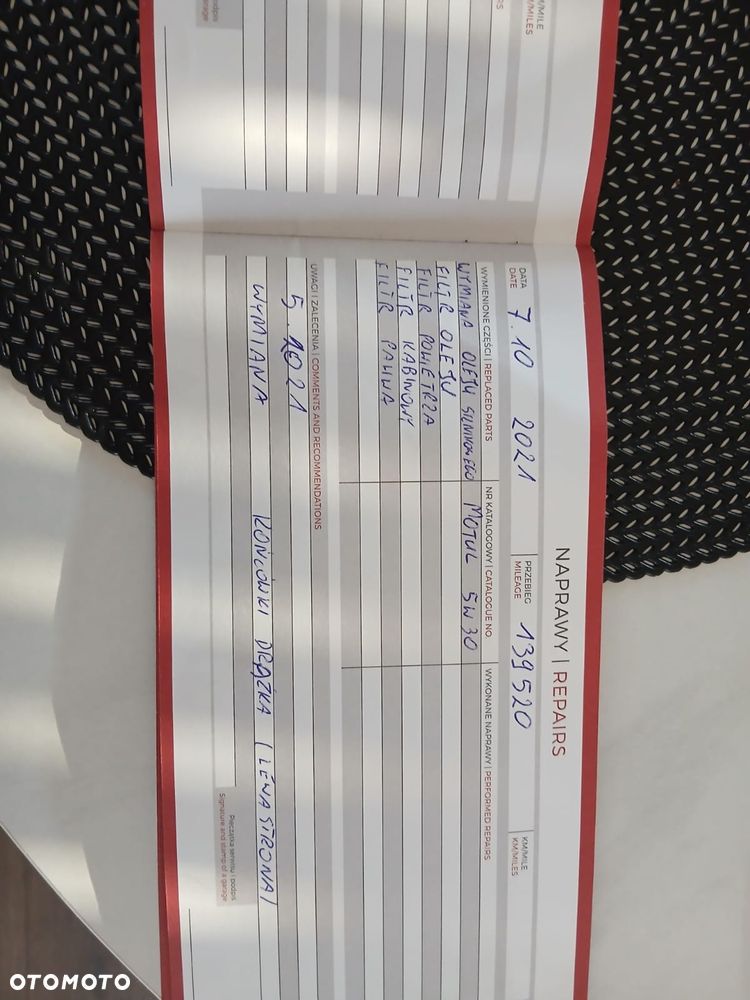 KM/MILE
KM/MILES
podpis
a garage
NAPRAWY | REPAIRS
DATA
DATE
7.10 2021
PRZEBIEG
MILEAGE
139520
KM/MILE
KM/MILES
WYMIENIONE CZĘŚCI | REPLACED PARTS
NR KATALOGOWY | CATALOGUE NO
WYKONANE NAPRAWY | PERFORMED REPAIRS
WYMIANA OLEJU SILNIKOWEGO MOTUL 5W30
FILTR OLEJU
FILTR POWIETRZA
FILTR KABINOWY
FILTR PALIWA
UWAGI I ZALECENIA | COMMENTS AND RECOMMENDATIONS
WYMIANA KOŃCÓWKI DRĄŻKA (LEWA STRONA)
Pieczątka serwisu i podpis
Signature and stamp of a garage
OTOMOTO